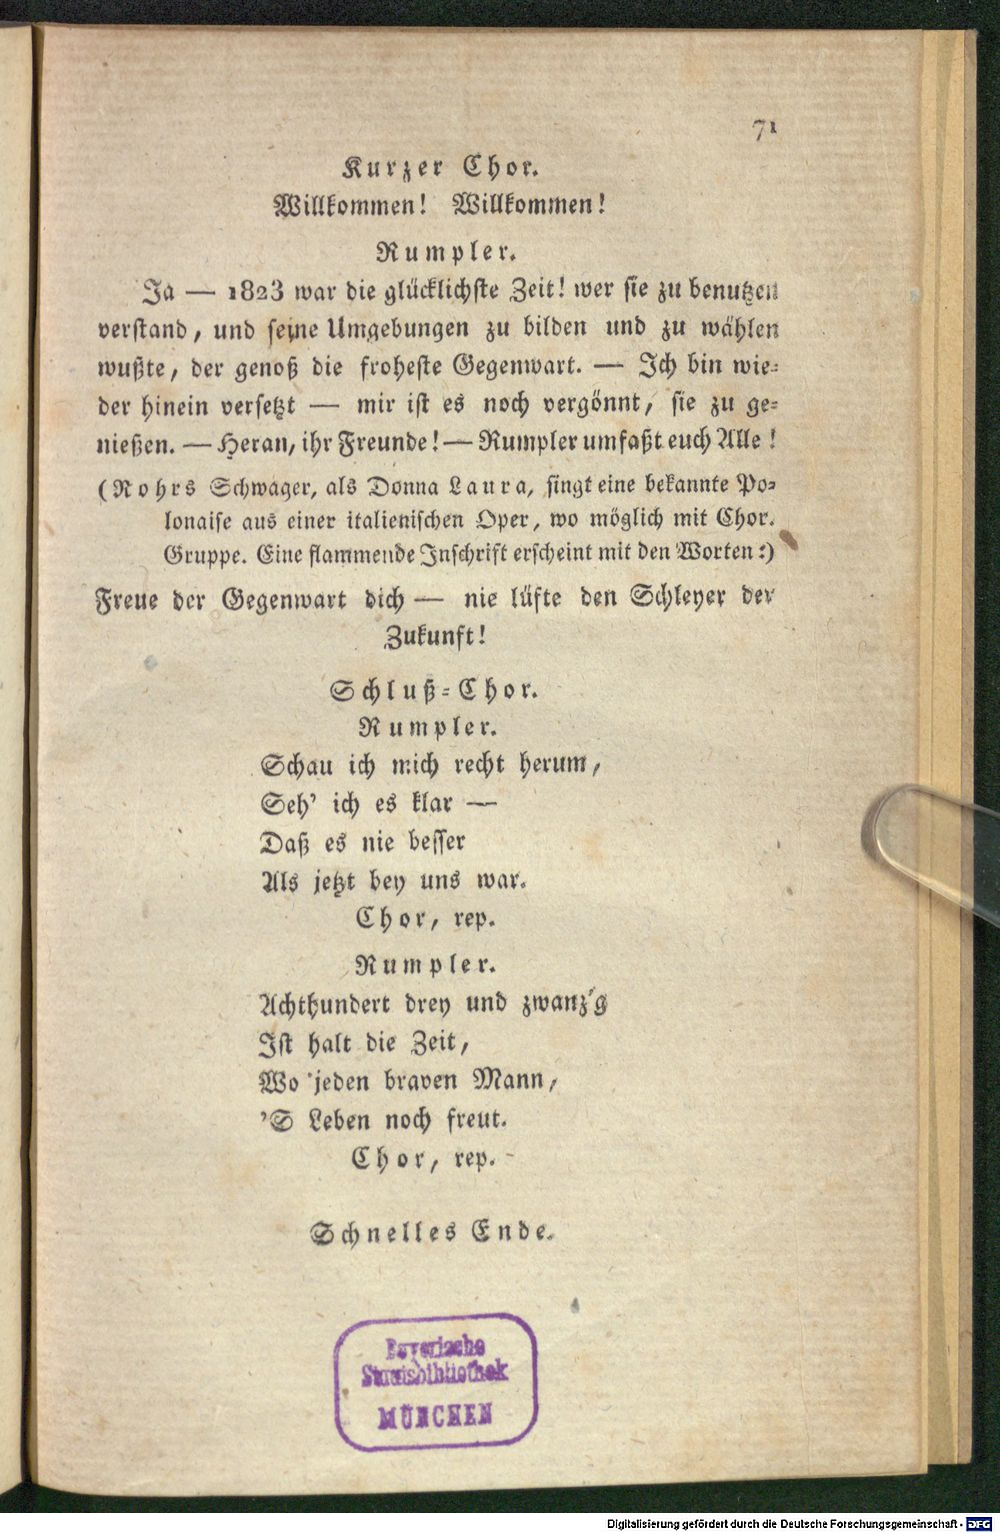 71
Kurzer Chor.
Willkommen! Willkommen!
Rumpler.
Ja — 1823 war die glücklichste Zeit! wer sie zu benutzen
verstand, und seine Umgebungen zu bilden und zu wählen
wußte, der genoß die froheste Gegenwart. — Ich bin wie-
der hinein versetzt — mir ist es noch vergönnt, sie zu ge-
nießen. — Heran, ihr Freunde! — Rumpler umfaßt euch Alle!
(Rohrs Schwager, als Donna Laura, singt eine bekannte Po-
lonaise aus einer italienischen Oper, wo möglich mit Chor.
Gruppe. Eine flammende Inschrift erscheint mit den Worten:)
Freue der Gegenwart dich — nie lüfte den Schleyer der
Zukunft!
Schluß-Chor.
Rumpler.
Schau ich mich recht herum,
Seh' ich es klar —
Daß es nie besser
Als jetzt bey uns war.
Chor, rep.
Rumpler.
Achthundert drey und zwanz'g
Ist halt die Zeit,
Wo jeden braven Mann,
'S Leben noch freut.
Chor, rep.
Schnelles Ende.
Bayerische
Staatsbibliothek
MÜNCHEN
Digitalisierung gefördert durch die Deutsche Forschungsgemeinschaft - DFG